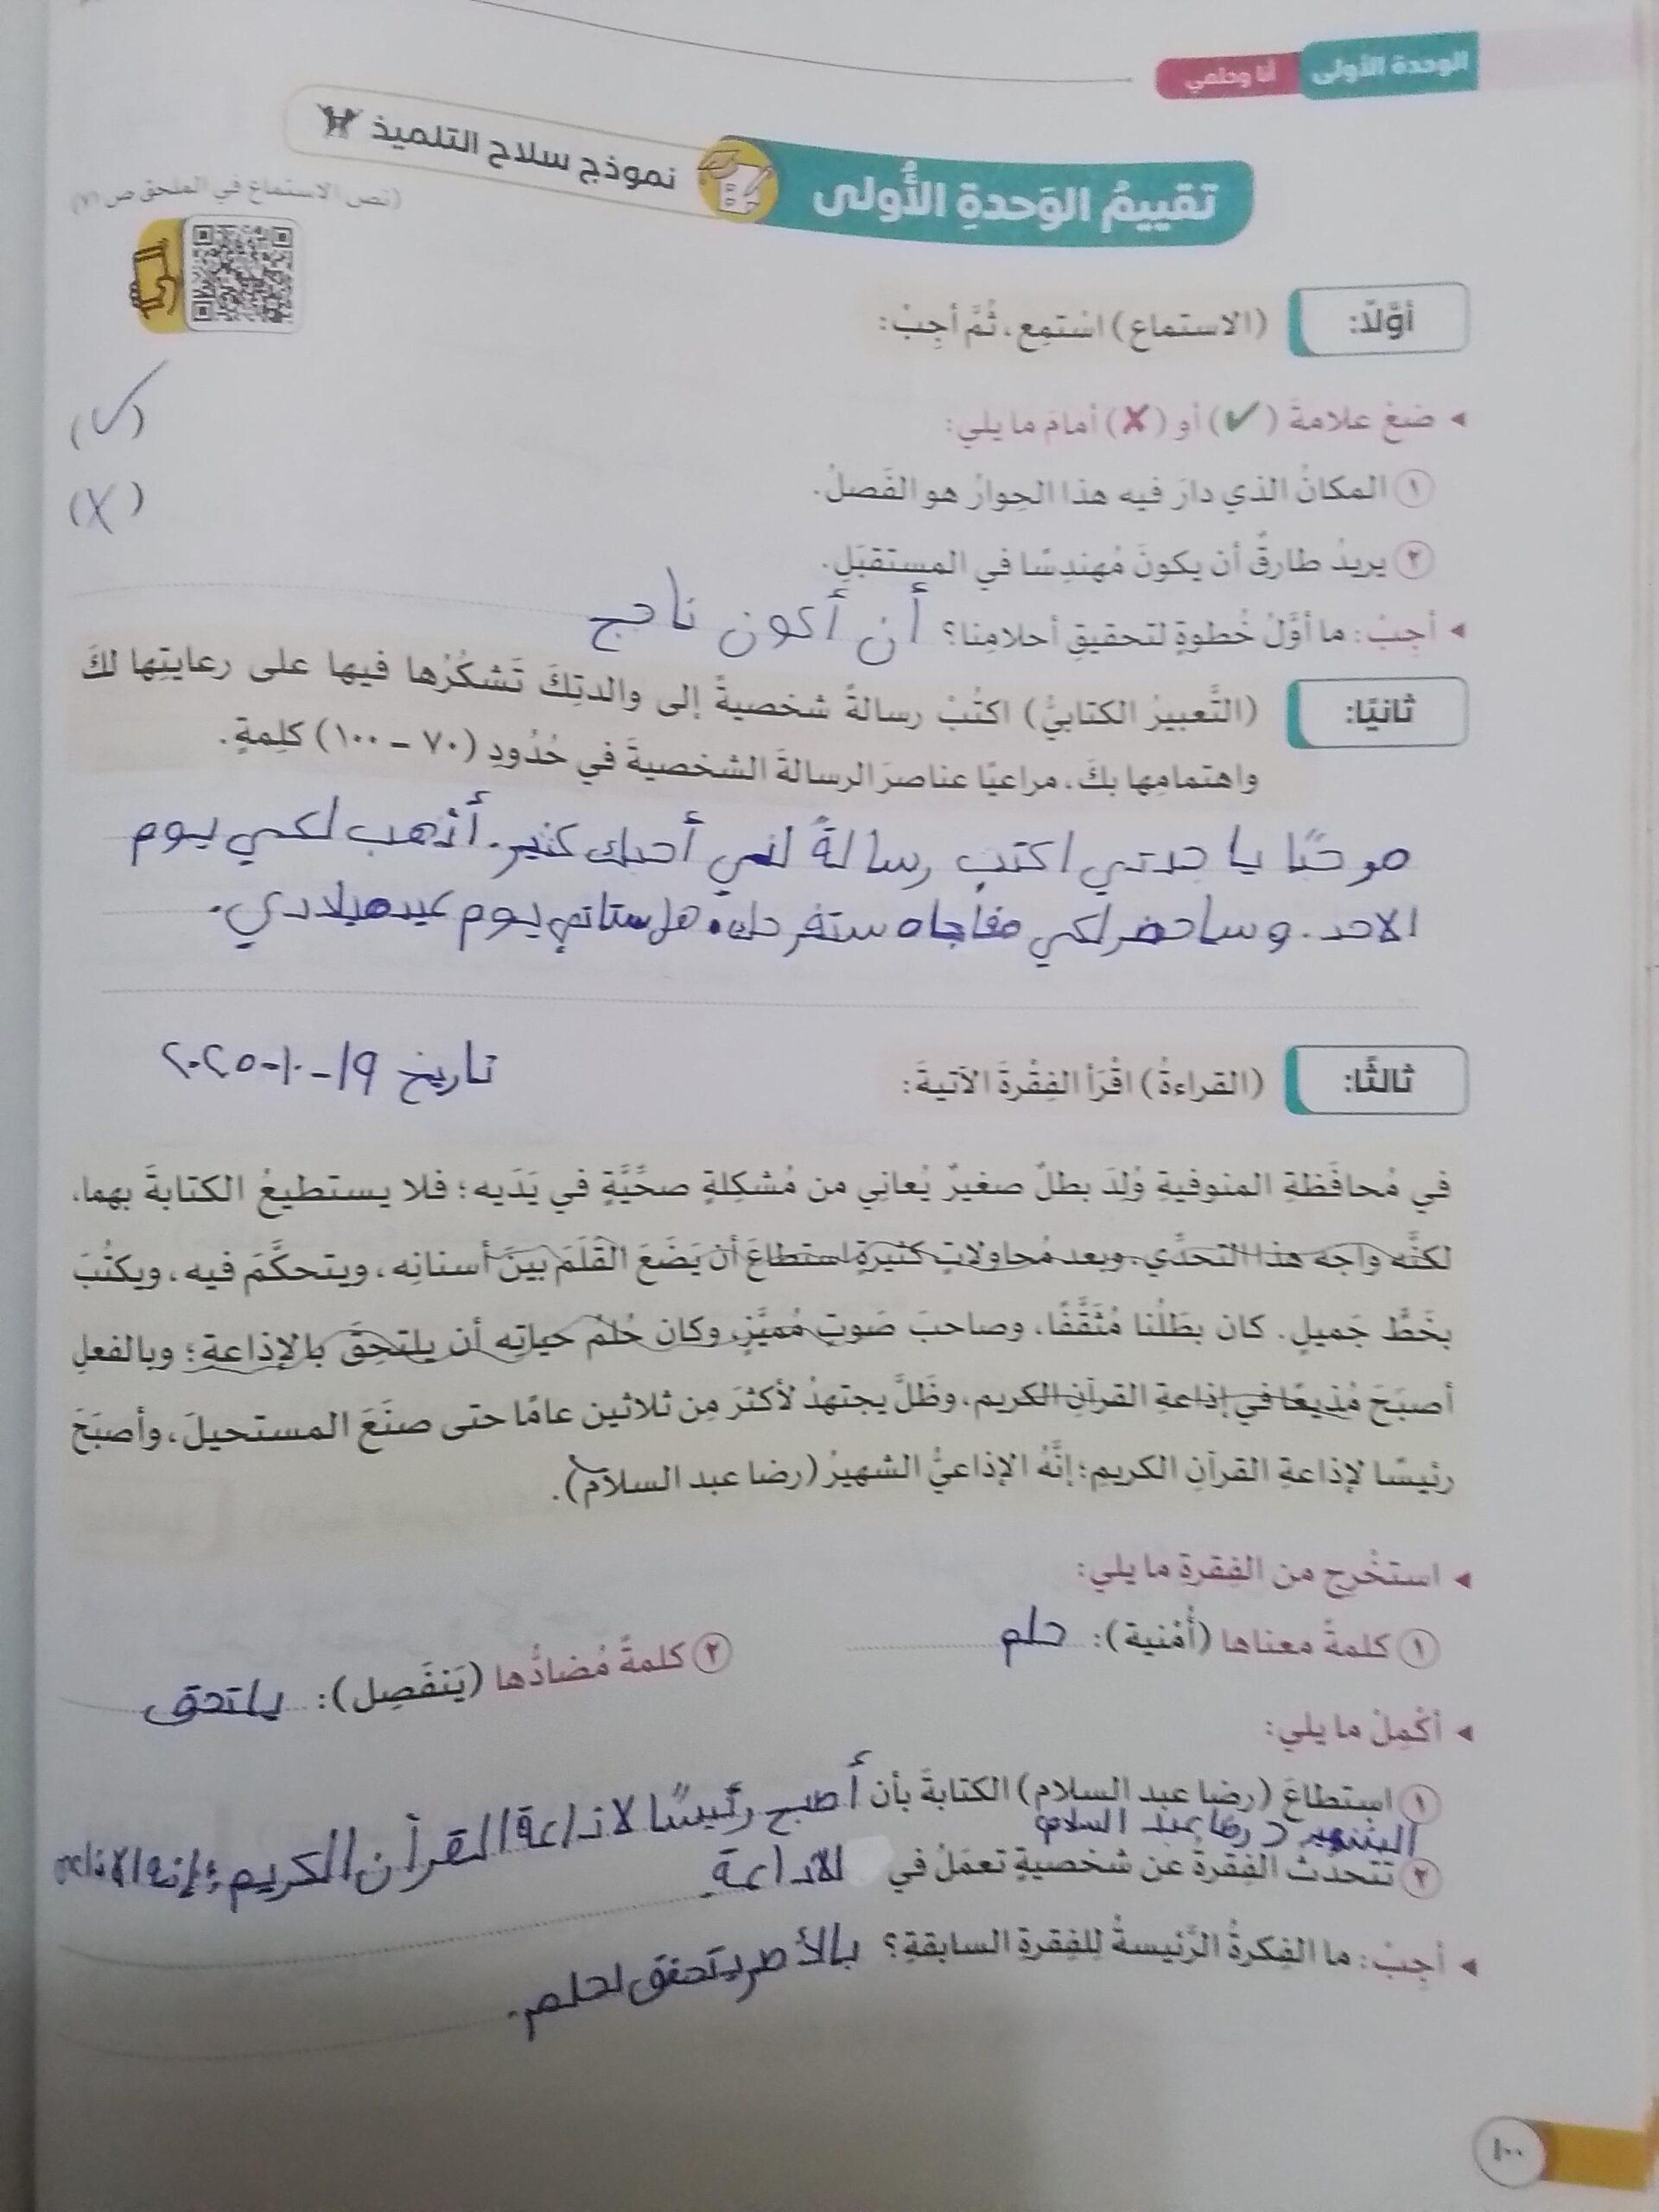 الوحدة الأولى أنا وحلمي
تقييمُ الوَحدةِ الأُولى نموذج سلاح التلميذ
(نص الاستماع في الملحق ص ٧١)
أوَّلًا: (الاستماع) اسْتمِع، ثُمَّ أجِبْ:
◂ ضَعْ علامةَ (✔) أو (✘) أمامَ ما يلي:
(✓)
① المكانُ الذي دارَ فيه هذا الحِوارُ هو الفَصلُ.
(X)
② يريدُ طارقٌ أن يكونَ مُهندِسًا في المستقبَلِ.
◂ أجِبْ: ما أوَّلُ خُطوةٍ لتحقيقِ أحلامِنا؟ أن أكون ناجح
ثانيًا: (التَّعبيرُ الكتابيُّ) اكتُبْ رسالةً شخصيةً إلى والدتِكَ تَشكُرُها فيها على رعايتِها لكَ
واهتمامِها بكَ، مراعيًا عناصرَ الرسالةَ الشخصيةَ في حُدُودِ (٧٠ – ١٠٠) كلِمةٍ.
يا جدتي اكتب رسالةً أحبك كثير. أذهب لكي يوم
الاحد. وساحضر لكي مفاجاه ستفرحك. هل ستاتي يوم عيد ميلادي.
ثالثًا: (القراءةُ) اقْرَأ الفِقْرةَ الآتيةَ: تاريخ ١٩-١٠-٢٠٢٥
في مُحافَظةِ المنوفيةِ وُلِدَ بطلٌ صغيرٌ يُعانِي من مُشكِلةٍ صحِّيَّةٍ في يَدَيه؛ فلا يستطيعُ الكتابةَ بهما،
لكنَّه واجه هذا التحدِّي، وبعد مُحاولاتٍ كثيرةٍ استطاعَ أن يَضَعَ القَلَمَ بينَ أسنانِه، ويتحكَّمَ فيه، ويكتُبَ
بخَطٍّ جَميلٍ. كان بطَلُنا مُثَقَّفًا، وصاحبَ صَوتٍ مُميَّزٍ، وكان حُلمُ حياتِه أن يلتحِقَ بالإذاعةِ؛ وبالفعلِ
أصبَحَ مُذيعًا في إذاعةِ القرآنِ الكريم، وظَلَّ يجتهدُ لأكثرَ مِن ثلاثين عامًا حتى صنَعَ المستحيلَ، وأصبَحَ
رئيسًا لإذاعةِ القرآنِ الكريمِ؛ إنَّهُ الإذاعيُّ الشهيرُ (رضا عبد السلام).
◂ استخْرِج من الفِقرةِ ما يلي:
① كلمةً معناها (أُمْنية): حلم ② كلمةً مُضادُّها (يَنفَصِل): يلتحق
◂ أكْمِلْ ما يلي:
① استطاعَ (رضا عبد السلام) الكتابةَ بأن أصبح رئيسًا لاذاعة القرآن الكريم؛ إنه الاذاعي
الشهير رضا عبد السلام
② تتحدثُ الفِقرةُ عن شخصيةٍ تعمَلُ في الاذاعة.
◂ أجِبْ: ما الفِكرةُ الرَّئيسةُ لِلفِقرةِ السابقةِ؟ تحقق لحلم.
١٠٠